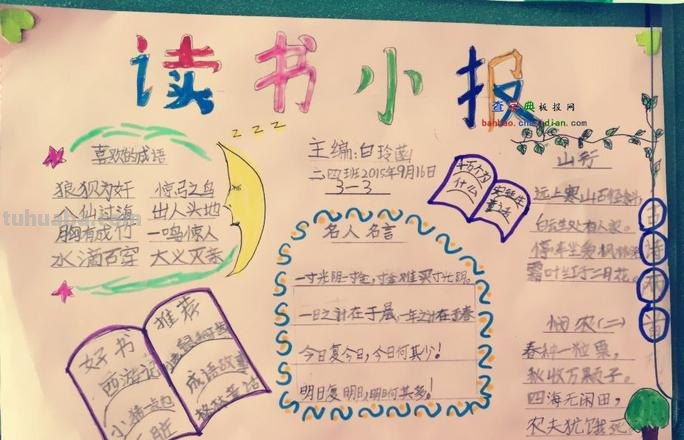 读书小报
查字典板报网
banbao.chazidian.com
主编:白玲菡
二四班2015年9月16日
3-3
喜欢的成语
狼狈为奸 惊弓之鸟
八仙过海 出人头地
胸有成竹 一鸣惊人
水滴石穿 大义灭亲
好书
推荐
西游记
成语故事
格林童话
名人名言
一寸光阴一寸金,寸金难买寸光阴。
一日之计在于晨,一年之计在于春
今日复今日,今日何其少!
明日复明日,明日何其多!
十万个为
什么
安徒生
童话
山行
远上寒山石径斜,
白云生处有人家。
停车坐爱枫林晚
霜叶红于二月花。
悯农(二)
春种一粒粟,
秋收万颗子。
四海无闲田,
农夫犹饿死
古诗两首